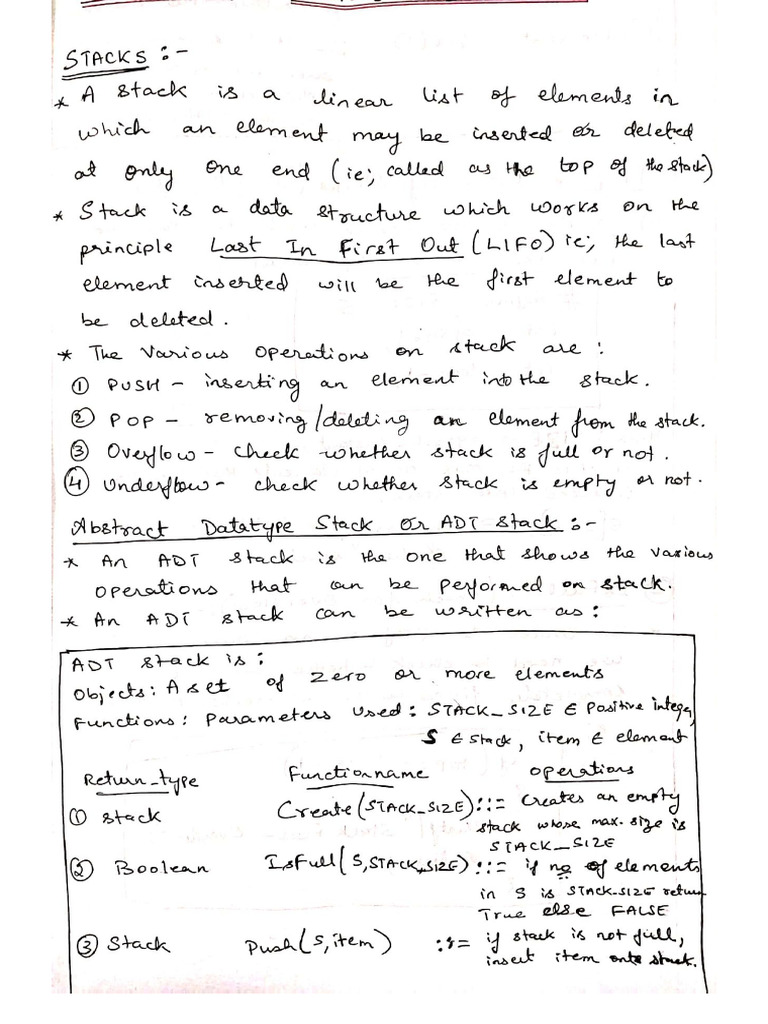 STACKS :-
* A stack is a linear list of elements in
which an element may be inserted or deleted
at only one end (ie; called as the top of the stack)
* Stack is a data structure which works on the
principle Last In First Out (LIFO) ie; the last
element inserted will be the first element to
be deleted.
* The various operations on stack are :
① PUSH - inserting an element into the stack.
② POP - removing/deleting an element from the stack.
③ Overflow - check whether stack is full or not.
④ Underflow - check whether stack is empty or not.
Abstract Datatype Stack or ADT stack :-
* An ADT stack is the one that shows the various
operations that can be performed on stack.
* An ADT stack can be written as :
ADT stack is :
Objects : A set of zero or more elements
Functions : Parameters used : STACK_SIZE ∈ Positive integer,
S ∈ stack, item ∈ element
Return_type Function name operations
① stack Create(STACK_SIZE) ::= Creates an empty
stack whose max. size is
STACK_SIZE
② Boolean IsFull(S, STACK_SIZE) ::= if no of elements
in S is STACK_SIZE return
True else FALSE
③ Stack Push(S, item) ::= if stack is not full,
insert item onto stack.